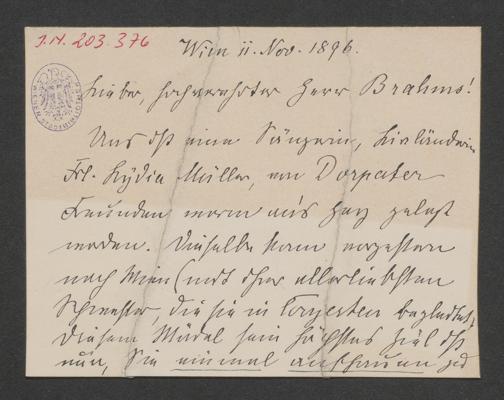 I.N. 203.376
Wien 11. Nov. 1896.
Lieber, hochverehrter Herr Brahms!
Uns ist eine Sängerin, Livländerin
Frl. Lydia Müller, von Dorpater
Freunden warm an's Herz gelegt
worden. Dieselbe kam vorgestern
nach Wien (mit ihrer allerliebsten
Schwester, die sie in begleitet;
Diesem Mädel sein höchstes Ziel ist
nun, Sie einmal anschauen zu